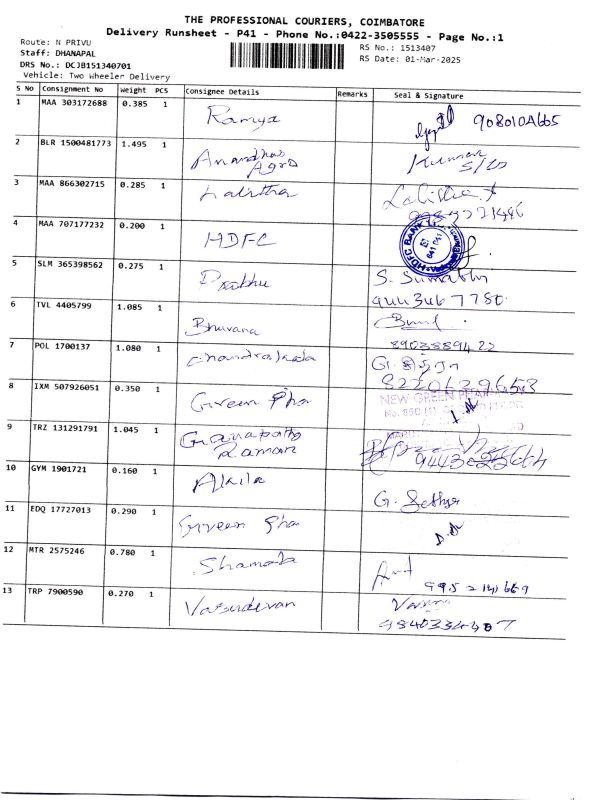 THE PROFESSIONAL COURIERS, COIMBATORE
Delivery Runsheet - P41 - Phone No.:0422-3505555 - Page No.:1
Route: N PRIVU
RS No.: 1513407
Staff: DHANAPAL
RS Date: 01-Mar-2025
DRS No.: DCJB151340701
Vehicle: Two Wheeler Delivery
S No Consignment No Weight PCS Consignee Details Remarks Seal & Signature
1 MAA 303172688 0.385 1 Ramya
2 BLR 1500481773 1.495 1 Anandhas Agro Kumar
3 MAA 866302715 0.285 1 Lalitha
4 MAA 707177232 0.200 1 HDFC HDFC BANK
5 SLM 365398562 0.275 1 Prabhu S. Sumathi
9443467780
6 TVL 4405799 1.085 1 Bhuvana
8903889422
7 POL 1700137 1.080 1 Chandralekala
8220639653
8 IXM 507926051 0.350 1 Green Pha NEW GREEN PHARMA
9 TRZ 131291791 1.045 1 Ganapathy Raman
10 GYM 1901721 0.160 1 Akila G. Sethu
11 EDQ 17727013 0.290 1 Green Pha
12 MTR 2575246 0.780 1 Shamala
13 TRP 7900590 0.270 1 Vasudevan
9840334307